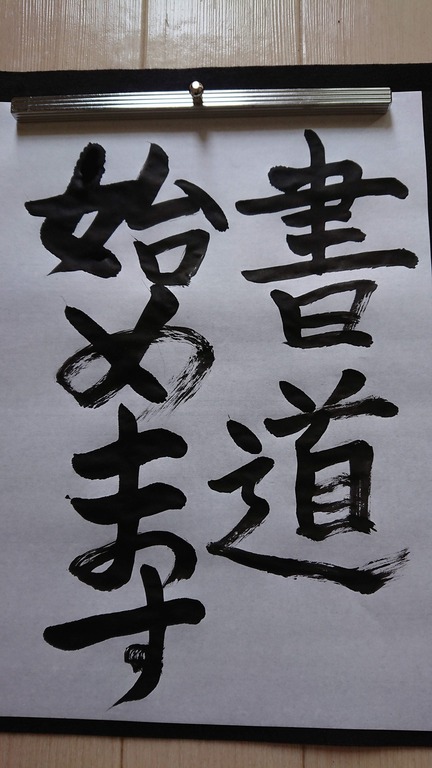 書道
始めます